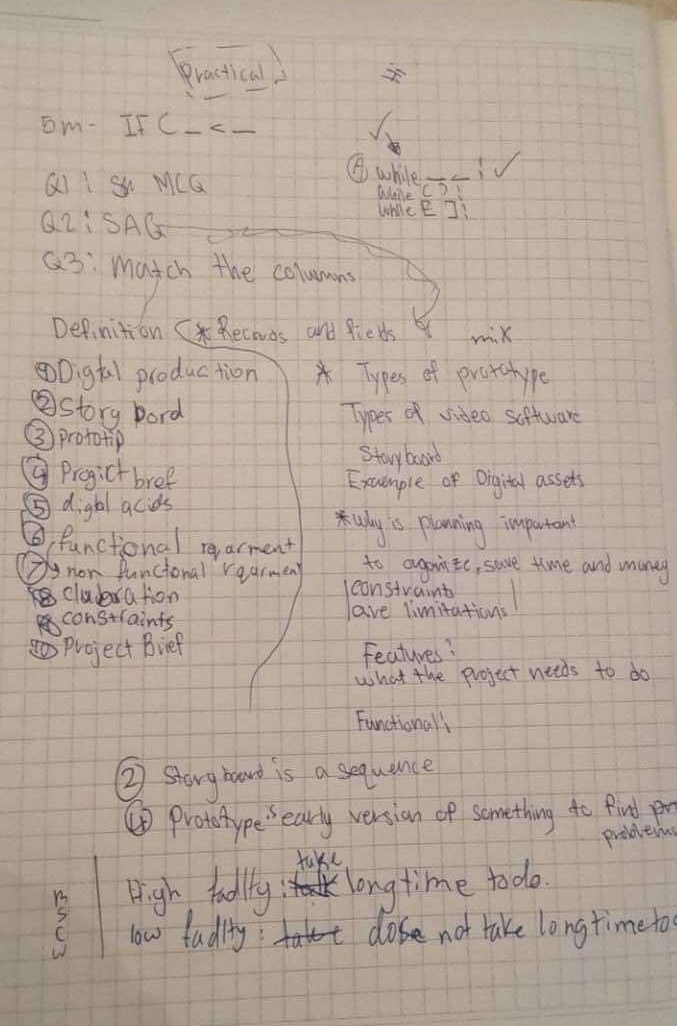 Practical
#
5m- IF ( _ < _
while _ _ :
while ( ) :
while [ ] :
Q1: MCQ
Q2: SAG
Q3: Match the columns
Definition
* Records and fields
mix
① Digtal production
② Story bord
③ prototip
④ Progict bref
⑤ digtl acids
⑥ functional rqarment
⑦ non functonal rqarment
⑧ claboration
⑨ constraints
⑩ Project Brief
* Types of prototype
Types of video software
Storyboard
Example of Digital assets
* why is planning important
to aganize, save time and money
constraints
are limitations!
Features:
what the project needs to do
Functional:
② Storyboard is a sequence
④ Prototype is early version of something to find
problems
M
S
C
W
High fadlty: take longtime todo.
low fadlty: dose not take longtime to